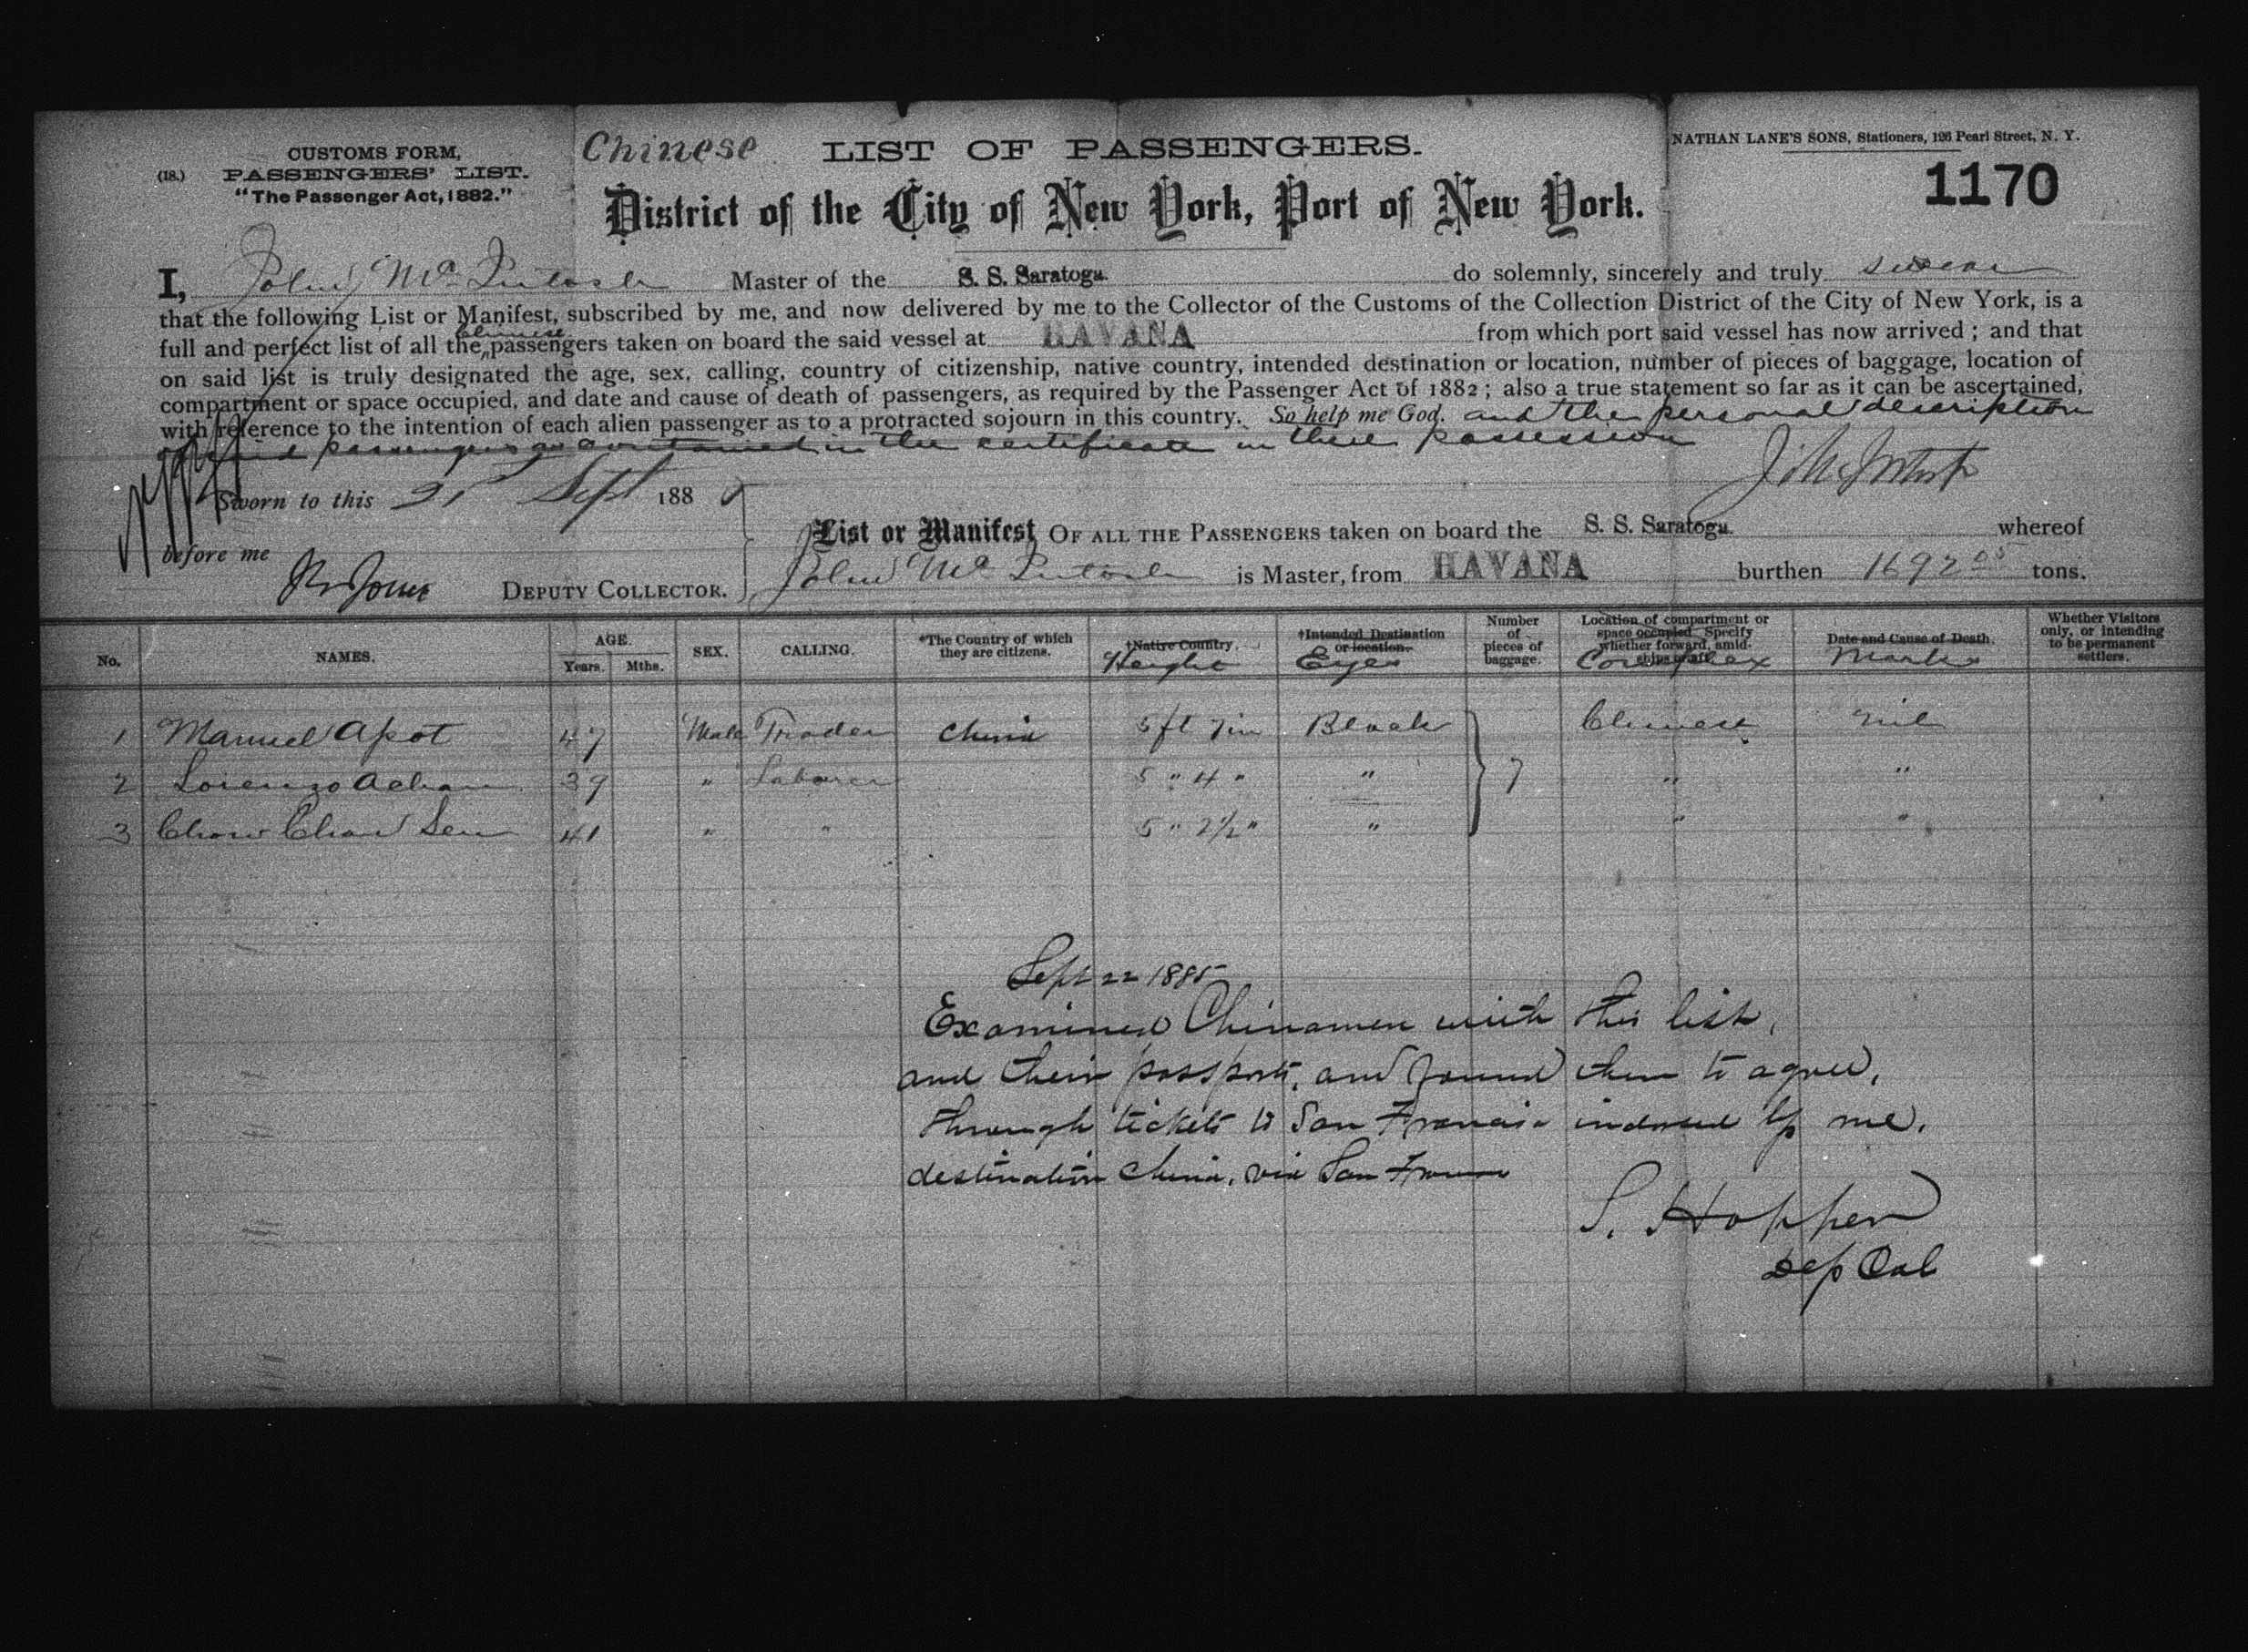 CUSTOMS FORM,
(18.) PASSENGERS' LIST.
"The Passenger Act, 1882."
Chinese LIST OF PASSENGERS.
District of the City of New York, Port of New York.
NATHAN LANE'S SONS, Stationers, 126 Pearl Street, N. Y.
1170
I, John McIntosh Master of the S. S. Saratoga do solemnly, sincerely and truly swear
that the following List or Manifest, subscribed by me, and now delivered by me to the Collector of the Customs of the Collection District of the City of New York, is a
full and perfect list of all the Chinese passengers taken on board the said vessel at HAVANA from which port said vessel has now arrived; and that
on said list is truly designated the age, sex, calling, country of citizenship, native country, intended destination or location, number of pieces of baggage, location of
compartment or space occupied, and date and cause of death of passengers, as required by the Passenger Act of 1882; also a true statement so far as it can be ascertained,
with reference to the intention of each alien passenger as to a protracted sojourn in this country. So help me God. and the personal description
of said passengers as contained in the certificate in their possession
J. McIntosh
Sworn to this 21 Sept 1885
before me
DEPUTY COLLECTOR.
List or Manifest OF ALL THE PASSENGERS taken on board the S. S. Saratoga whereof
John McIntosh is Master, from HAVANA burthen 1692 05 tons.
No. NAMES. AGE. Years. Mths. SEX. CALLING. *The Country of which they are citizens. †Native Country. Height †Intended Destination or location. Eyes Number of pieces of baggage. Location of compartment or space occupied. Specify whether forward, amidships or aft. Complex Date and Cause of Death. Marks Whether Visitors only, or intending to be permanent settlers.
1 Manuel Apot 47 Male Trader China 5 ft 7 in Black Chinese nil
2 Lorenzo Achan 39 " Laborer 5 " 4 " " 7 " "
3 Chow Chan Sen 41 " " 5 " 2½ " " " "
Sept 22 1885
Examined Chinamen with this list,
and their passports, and found them to agree,
through tickets to San Francisco indorsed by me.
destination China, via San Francisco
S. Hopper
Dep Col